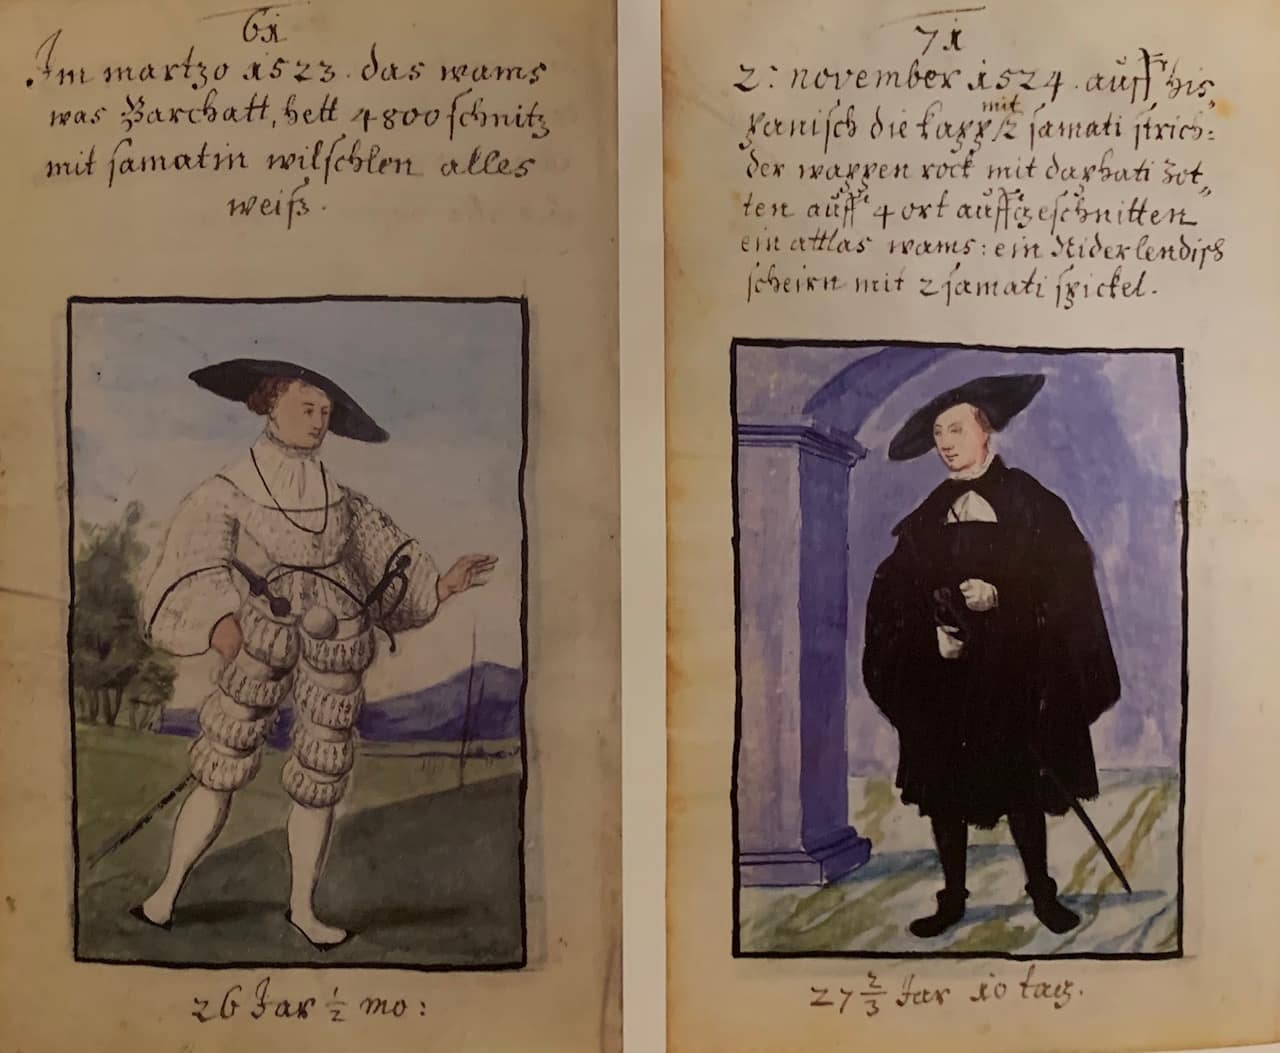 61
Im martzo 1523. das wams
was Barchatt, hett 4800 schnitz
mit samatin wilschlen alles
weiß.
26 Jar ½ mo:
71
2: november 1524. auff his„
panisch die kapp mit /2 samati strich:
der wappen rock mit daphati zot„
ten auff 4 ort auffgeschnitten
ein attlas wams: ein Niderlendisch
scheirn mit 2 samati spickel.
27 ⅔ Jar 10 tag.